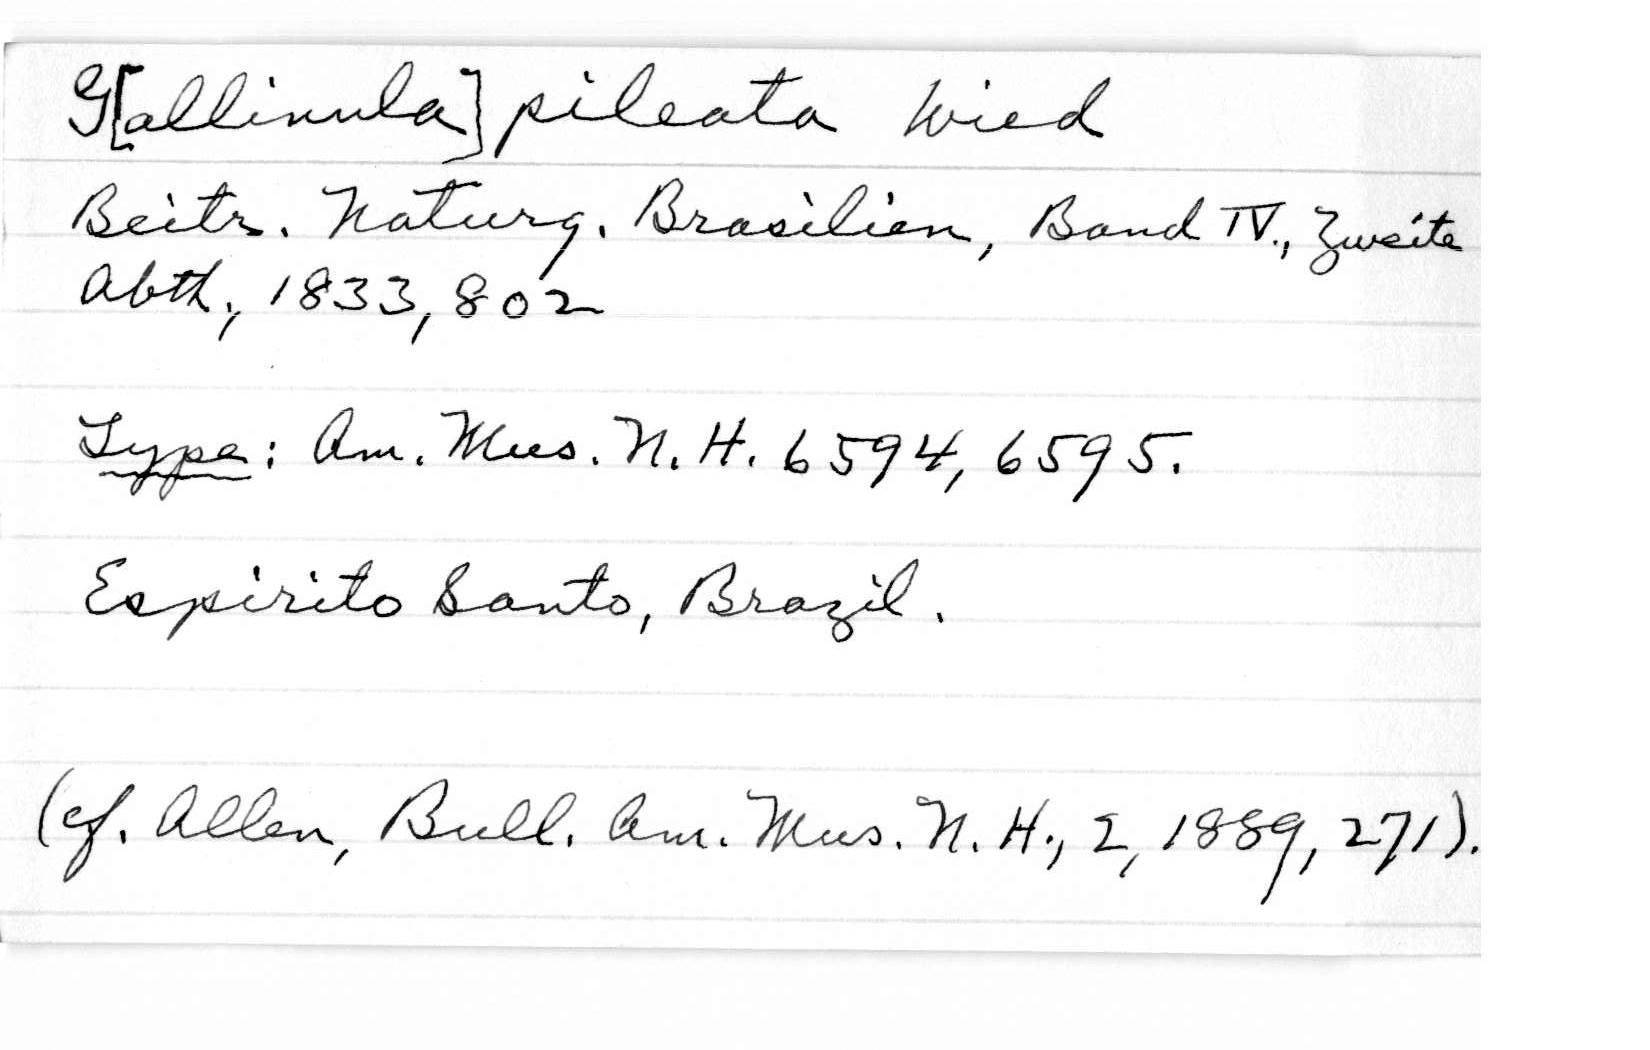 G[allinula] pileata Wied
Beitr. Naturg. Brasilien, Band IV., Zweite
Abth., 1833, 802
Type: Am. Mus. N. H. 6594, 6595.
Espirito Santo, Brazil.
(cf. Allen, Bull. Am. Mus. N. H., 2, 1889, 271).